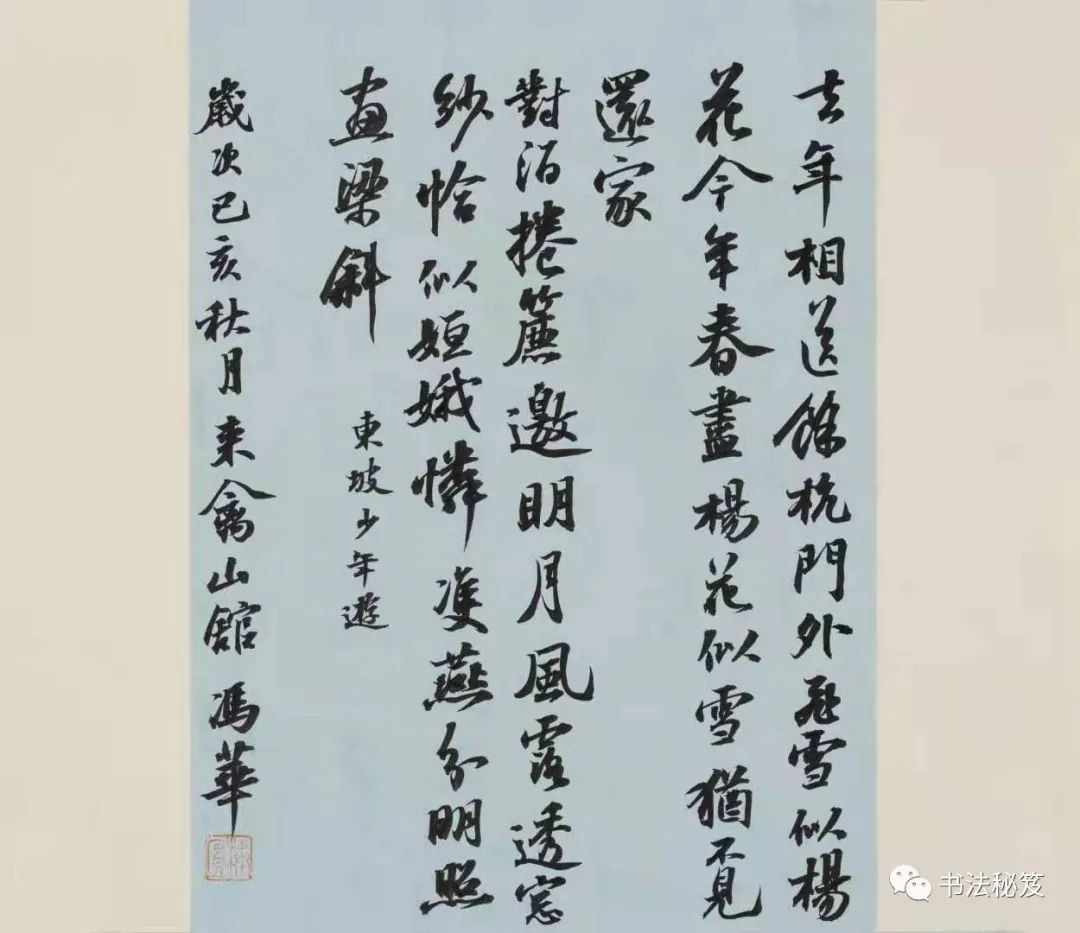 去年相送餘杭門外飛雪似楊
花今年春盡楊花似雪猶不見
還家
對酒捲簾邀明月風露透窓
紗恰似姮娥憐雙燕分明照
畫梁斜
東坡少年遊
歲次己亥秋月来禽山館 馮華
书法秘笈